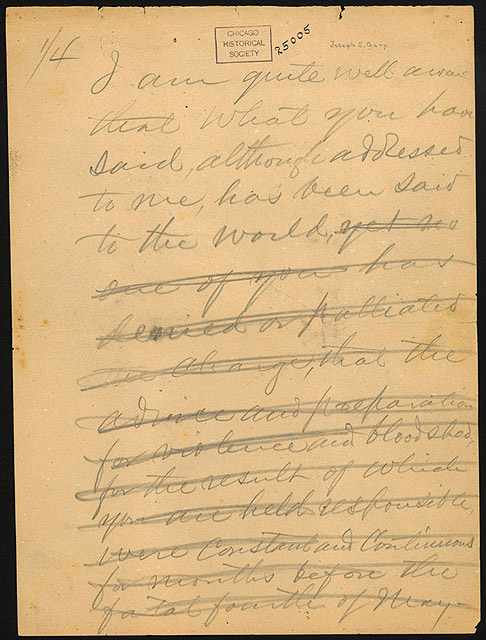 1/4
CHICAGO
HISTORICAL
SOCIETY
25005
Joseph E. Gary
I am quite well aware
that what you have
said, although addressed
to me, has been said
to the world, yet no
one of you has
denied or palliated
the charge, that the
advice and preparation
for violence and bloodshed,
for the result of which
you are held responsible,
were constant and continuous
for months before the
fatal fourth of May